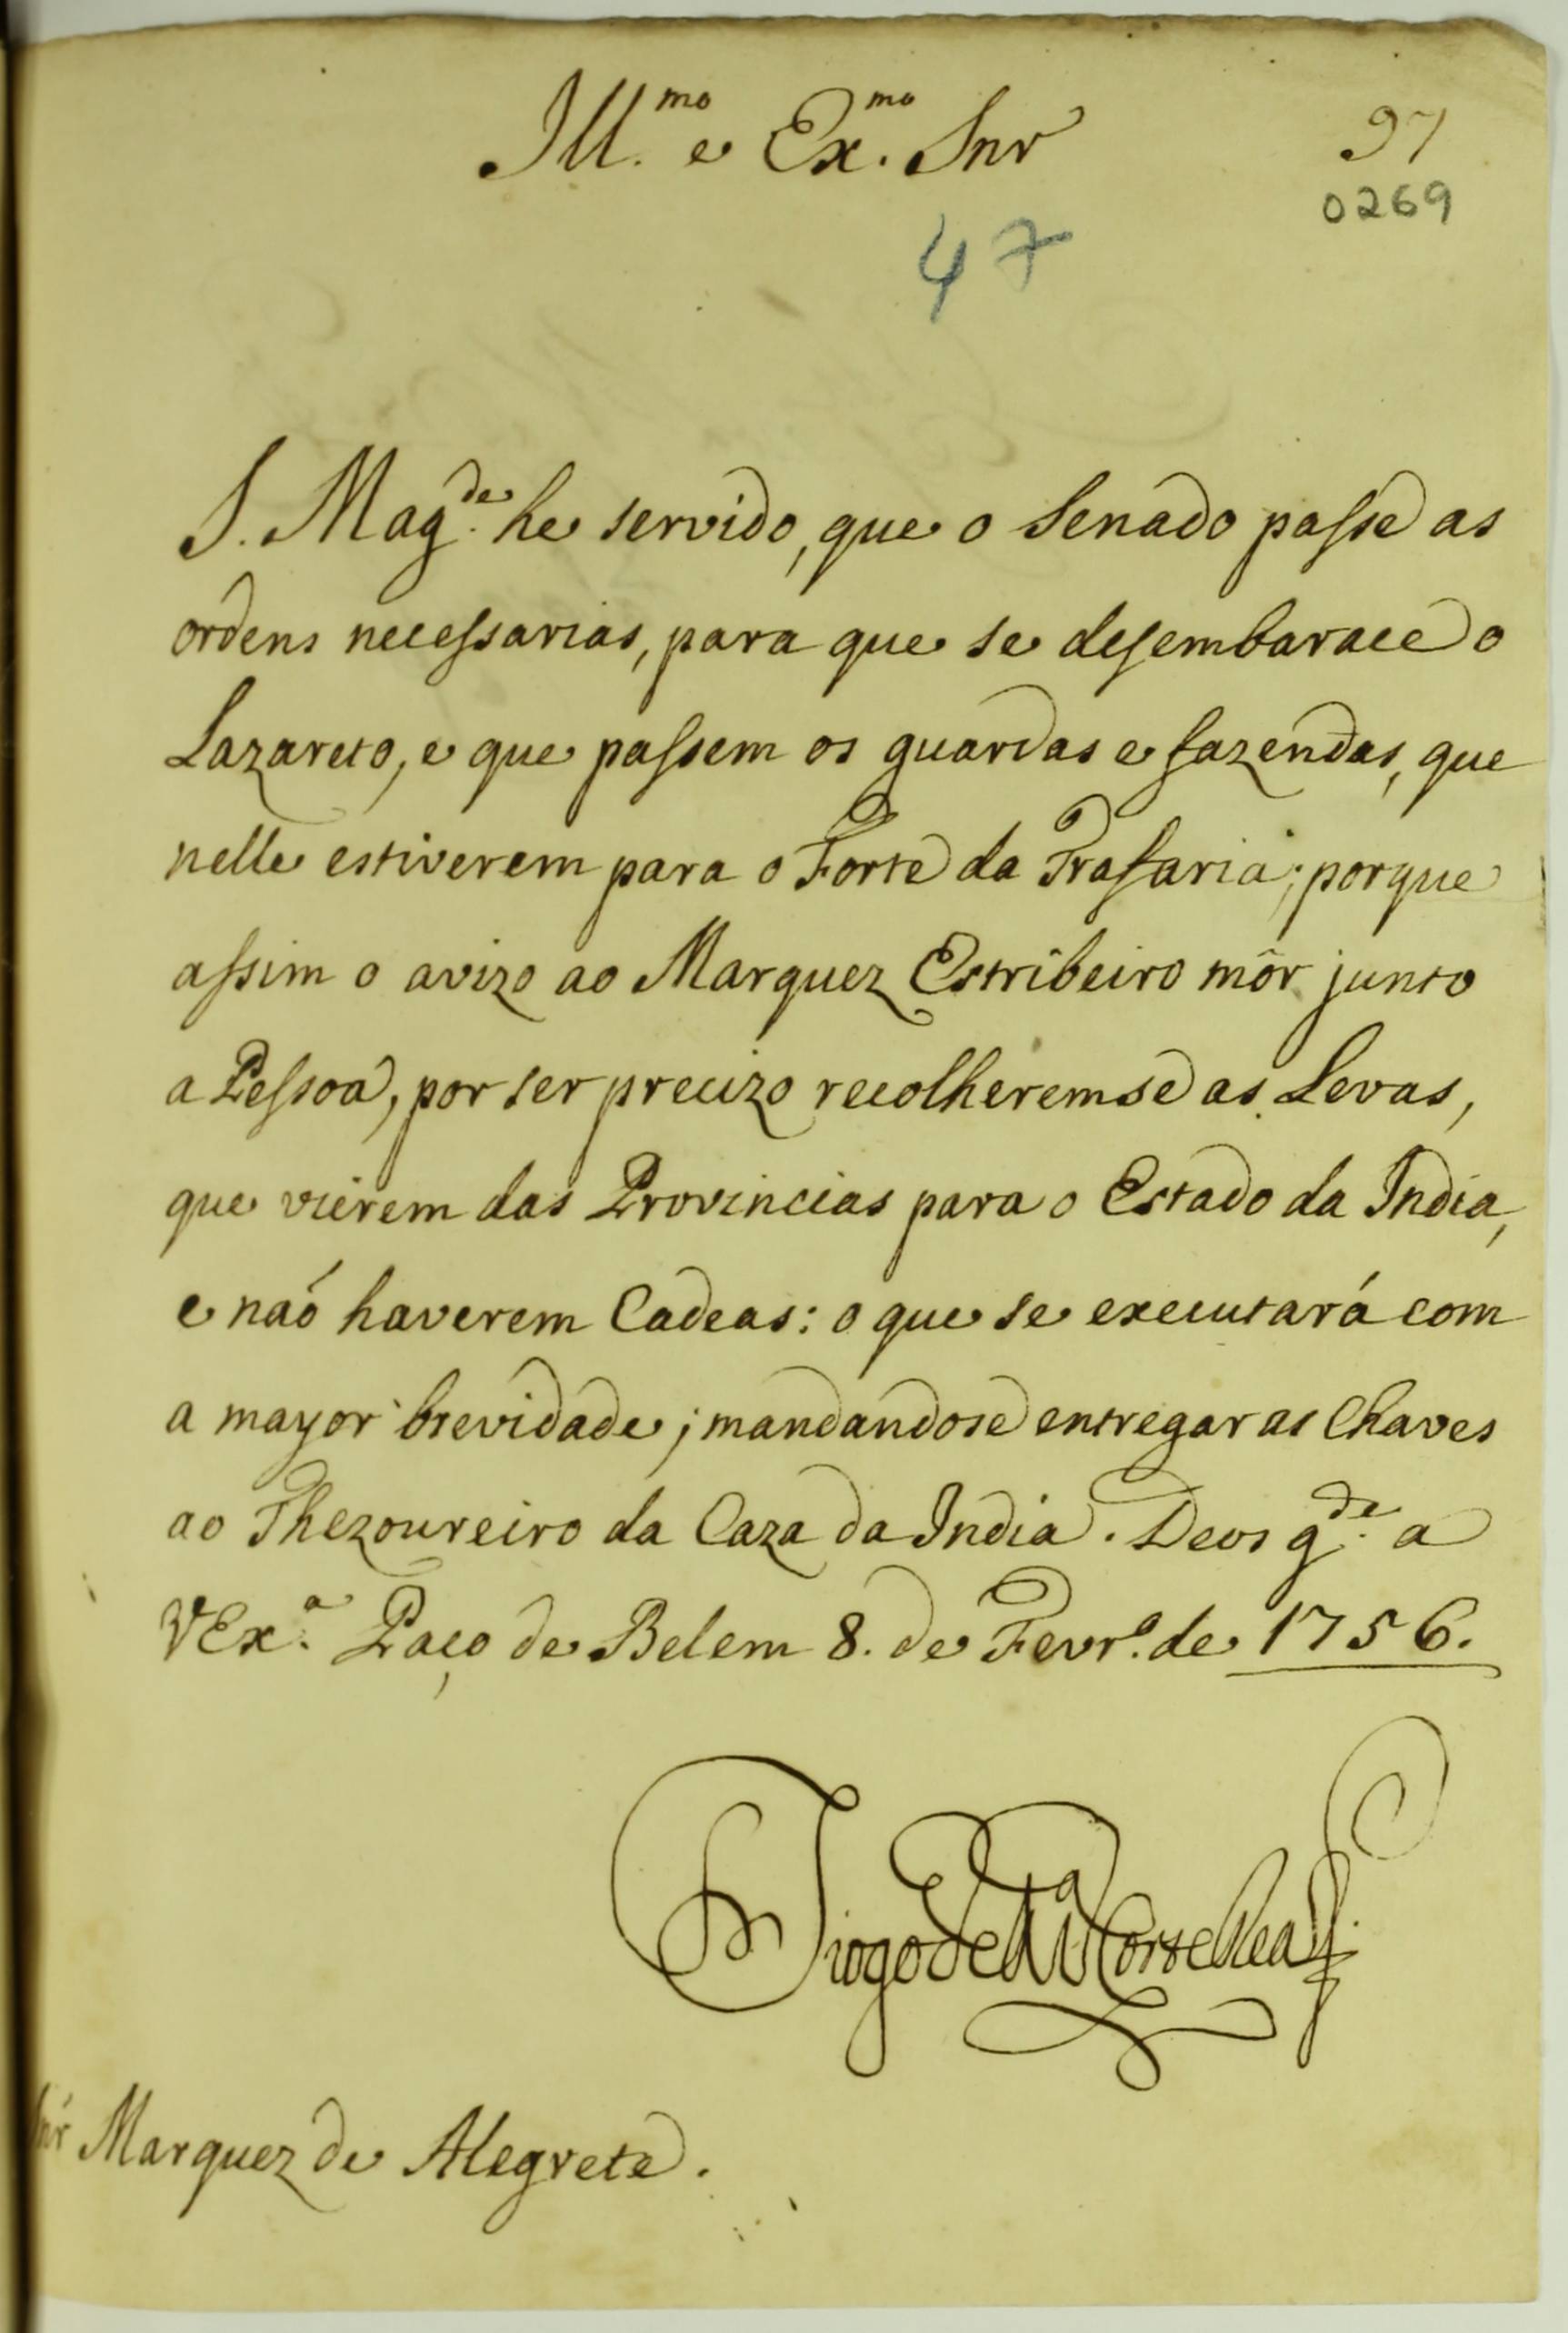 Ill.mo e Ex.mo Snr
97
0269
47
S. Mag.de he servido, que o Senado passe as
ordens necessarias, para que se desembarace o
Lazareto, e que passem os guardas e fazendas, que
nelle estiverem para o Forte da Trafaria; porque
assim o avizo ao Marquez Estribeiro môr junto
a Pessoa, por ser precizo recolheremse as Levas,
que vierem das Provincias para o Estado da India,
e naó haverem Cadeas: o que se executará com
a mayor brevidade; mandandose entregar as Chaves
ao Thezoureiro da Caza da India. Deos g.de a
VEx.a Paço de Belem 8. de Fevr.o de 1756.
Diogo de M.ça Corte Real
Snr Marquez de Alegrete.